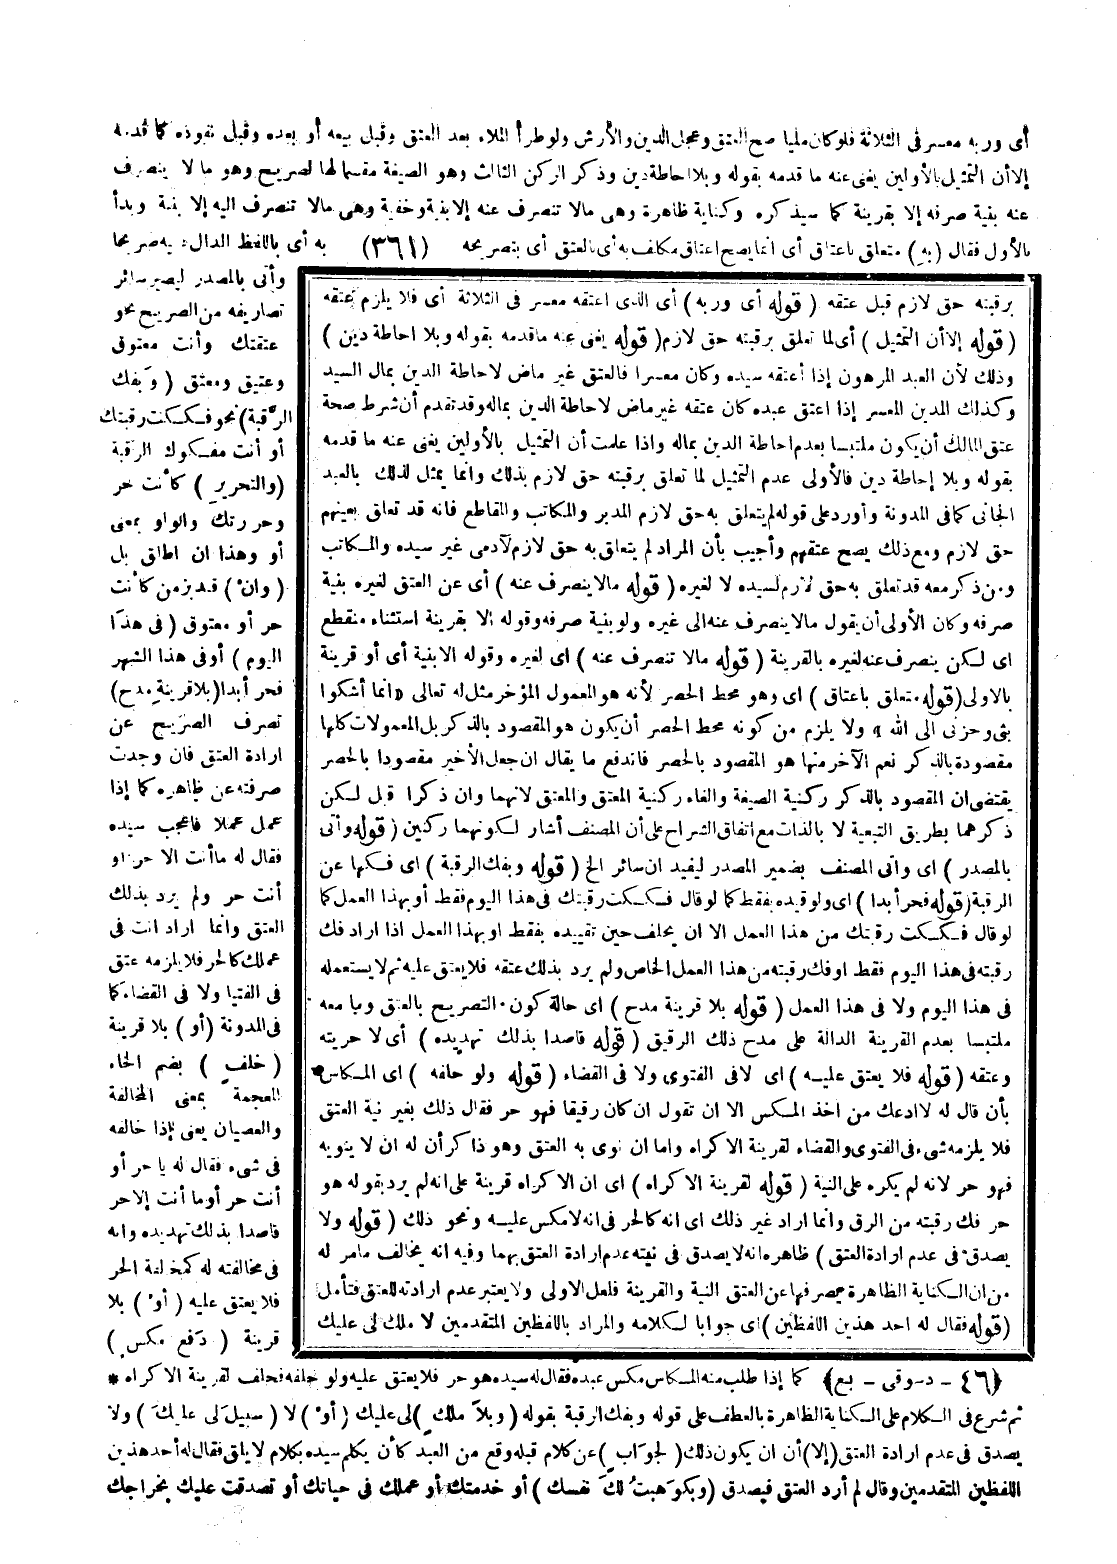 أى وربه معسر فى الثلاثة فلو كان مليا صح العتق وعجل الدين والأرش ولو طرأ الملاء بعد العتق وقبل بيعه أو بعده وقبل نفوذه كما قدمه
إلا أن التمثيل بالأولين يغنى عنه ما قدمه بقوله وبلا احاطة دين وذكر الركن الثالث وهو الصيغة مقسما لها لصريح وهو ما لا ينصرف
عنه بنية صرفه إلا بقرينة كما سيذكره وكناية ظاهرة وهى مالا تنصرف عنه إلا بنية وخفية وهى مالا تنصرف اليه إلا بنية وبدأ
بالأول فقال (به) متعلق باعتاق أى انما يصح اعتاق مكلف به أى بالعتق أى بتصريحه (٣٦١) به أى باللفظ الدال عليه صريحا
وأتى بالمصدر ليصير سائر
تصاريفه من الصريح نحو
عتقتك وأنت معتوق
وعتيق ومعتق (وبفك
الرقبة) نحو فككت رقبتك
أو أنت مفكوك الرقبة
(والتحرير) كأنت حر
وحررتك والواو بمعنى
أو وهذا ان اطلق بل
(وان) قيد بزمن كأنت
حر أو معتوق (فى هذا
اليوم) أو فى هذا الشهر
فحر أبدا (بلا قرينة مدح)
تصرف الصريح عن
ارادة العتق فان وجدت
صرفته عن ظاهره كما إذا
عمل عملا فاعجب سيده
فقال له ما أنت الا حر او
أنت حر ولم يرد بذلك
العتق وانما اراد انت فى
عملك كالحر فلا يلزمه عتق
فى الفتيا ولا فى القضاء كما
فى المدونة (أو) بلا قرينة
(خلف) بضم الخاء
المعجمة بمعنى المخالفة
والعصيان يعنى إذا خالفه
فى شىء فقال له يا حر أو
أنت حر أو ما أنت إلا حر
قاصدا بذلك تهديده وانه
فى مخالفته له كمخالفة الحر
فلا يعتق عليه (أو) بلا
قرينة (دفع مكس)
برقبته حق لازم قبل عتقه (قوله أى وربه) أى الذى اعتقه معسر فى الثلاثة أى فلا يلزم عتقه
(قوله إلا أن التمثيل) أى لما تعلق برقبته حق لازم (قوله يغنى عنه ما قدمه بقوله وبلا احاطة دين)
وذلك لأن العبد المرهون إذا أعتقه سيده وكان معسرا فالعتق غير ماض لاحاطة الدين بمال السيد
وكذلك المدين المعسر إذا اعتق عبده كان عتقه غير ماض لاحاطة الدين بماله وقد تقدم أن شرط صحة
عتق المالك أن يكون ملتبسا بعدم احاطة الدين بماله واذا علمت أن التمثيل بالأولين يغنى عنه ما قدمه
بقوله وبلا إحاطة دين فالأولى عدم التمثيل لما تعلق برقبته حق لازم بذلك وانما يمثل لذلك بالعبد
الجانى كما فى المدونة وأورد على قوله لم يتعلق به حق لازم المدبر والمكاتب والمقاطع فانه قد تعلق بعينهم
حق لازم ومع ذلك يصح عتقهم وأجيب بأن المراد لم يتعلق به حق لازم لآدمى غير سيده والمكاتب
ومن ذكر معه قد تعلق به حق لازم لسيده لا لغيره (قوله مالا ينصرف عنه) أى عن العتق لغيره بنية
صرفه وكان الأولى أن يقول مالا ينصرف عنه الى غيره ولو بنية صرفه وقوله الا بقرينة استثناء منقطع
اى لكن ينصرف عنه لغيره بالقرينة (قوله مالا تنصرف عنه) اى لغيره وقوله الا بنية أى أو قرينة
بالاولى (قوله متعلق باعتاق) اى وهو محط الحصر لأنه هو المعمول المؤخر مثل له تعالى «انما أشكوا
بثى وحزنى الى الله» ولا يلزم من كونه محط الحصر أن يكون هو المقصود بالذكر بل المعمولات كلها
مقصودة بالذكر نعم الآخر منها هو المقصود بالحصر فاندفع ما يقال ان جعل الأخير مقصودا بالحصر
يقتضى ان المقصود بالذكر ركنية الصيغة والغاء ركنية المعتق والمعتق لانهما وان ذكرا قبل لكن
ذكرهما بطريق التبعية لا بالذات مع اتفاق الشراح على أن المصنف أشار لكونهما ركنين (قوله وأتى
بالمصدر) اى وأتى المصنف بضمير المصدر ليفيد ان سائر الخ (قوله وبفك الرقبة) اى فكها عن
الرقبة (قوله فحر أبدا) اى ولو قيده بفقط كما لو قال فككت رقبتك فى هذا اليوم فقط أو بهذا العمل كما
لو قال فككت رقبتك من هذا العمل الا ان يحلف حين تقييده بفقط او بهذا العمل اذا اراد فك
رقبته فى هذا اليوم فقط او فك رقبته من هذا العمل الخاص ولم يرد بذلك عتقه فلا يعتق عليه ثم لا يستعمله
فى هذا اليوم ولا فى هذا العمل (قوله بلا قرينة مدح) اى حالة كون التصريح بالعتق وما معه
ملتبسا بعدم القرينة الدالة على مدح ذلك الرقيق (قوله قاصدا بذلك تهديده) أى لا حريته
وعتقه (قوله فلا يعتق عليه) اى لا فى الفتوى ولا فى القضاء (قوله ولو حلفه) اى المكاس
بأن قال له لا ادعك من اخذ المكس الا ان تقول ان كان رقيقا فهو حر فقال ذلك بغير نية العتق
فلا يلزمه شىء فى الفتوى والقضاء لقرينة الاكراه واما ان نوى به العتق وهو ذاكر أن له ان لا ينويه
فهو حر لانه لم يكره على النية (قوله لقرينة الاكراه) اى ان الاكراه قرينة على انه لم يرد بقوله هو
حر فك رقبته من الرق وانما اراد غير ذلك اى انه كالحر فى انه لا مكس عليه ونحو ذلك (قوله ولا
يصدق فى عدم ارادة العتق) ظاهره انه لا يصدق فى نيته عدم ارادة العتق بهما وفيه انه يخالف مامر له
من ان الكناية الظاهرة يصرفها عن العتق النية والقرينة فلعل الاولى ولا يعتبر عدم ارادته للعتق فتأمل
(قوله فقال له احد هذين اللفظين) اى جوابا لكلامه والمراد باللفظين المتقدمين لا ملك لى عليك
(٤٦ - دسوقى - بع) كما إذا طلب منه المكاس مكس عبده فقال له سيده هو حر فلا يعتق عليه ولو حلفه فحلف لقرينة الاكراه *
ثم شرع فى الكلام على الكناية الظاهرة بالعطف على قوله وبفك الرقبة بقوله (وبلا ملك) لى عليك (أو) لا (سبيل لى عليك) ولا
يصدق فى عدم ارادة العتق (إلا) أن ان يكون ذلك (لجواب) عن كلام قبله وقع من العبد كأن يكلم سيده بكلام لا يليق فقال له أحد هذين
اللفظين المتقدمين وقال لم أرد العتق فيصدق (وبكوهبت لك نفسك) أو خدمتك أو عملك فى حياتك أو تصدقت عليك بخراجك